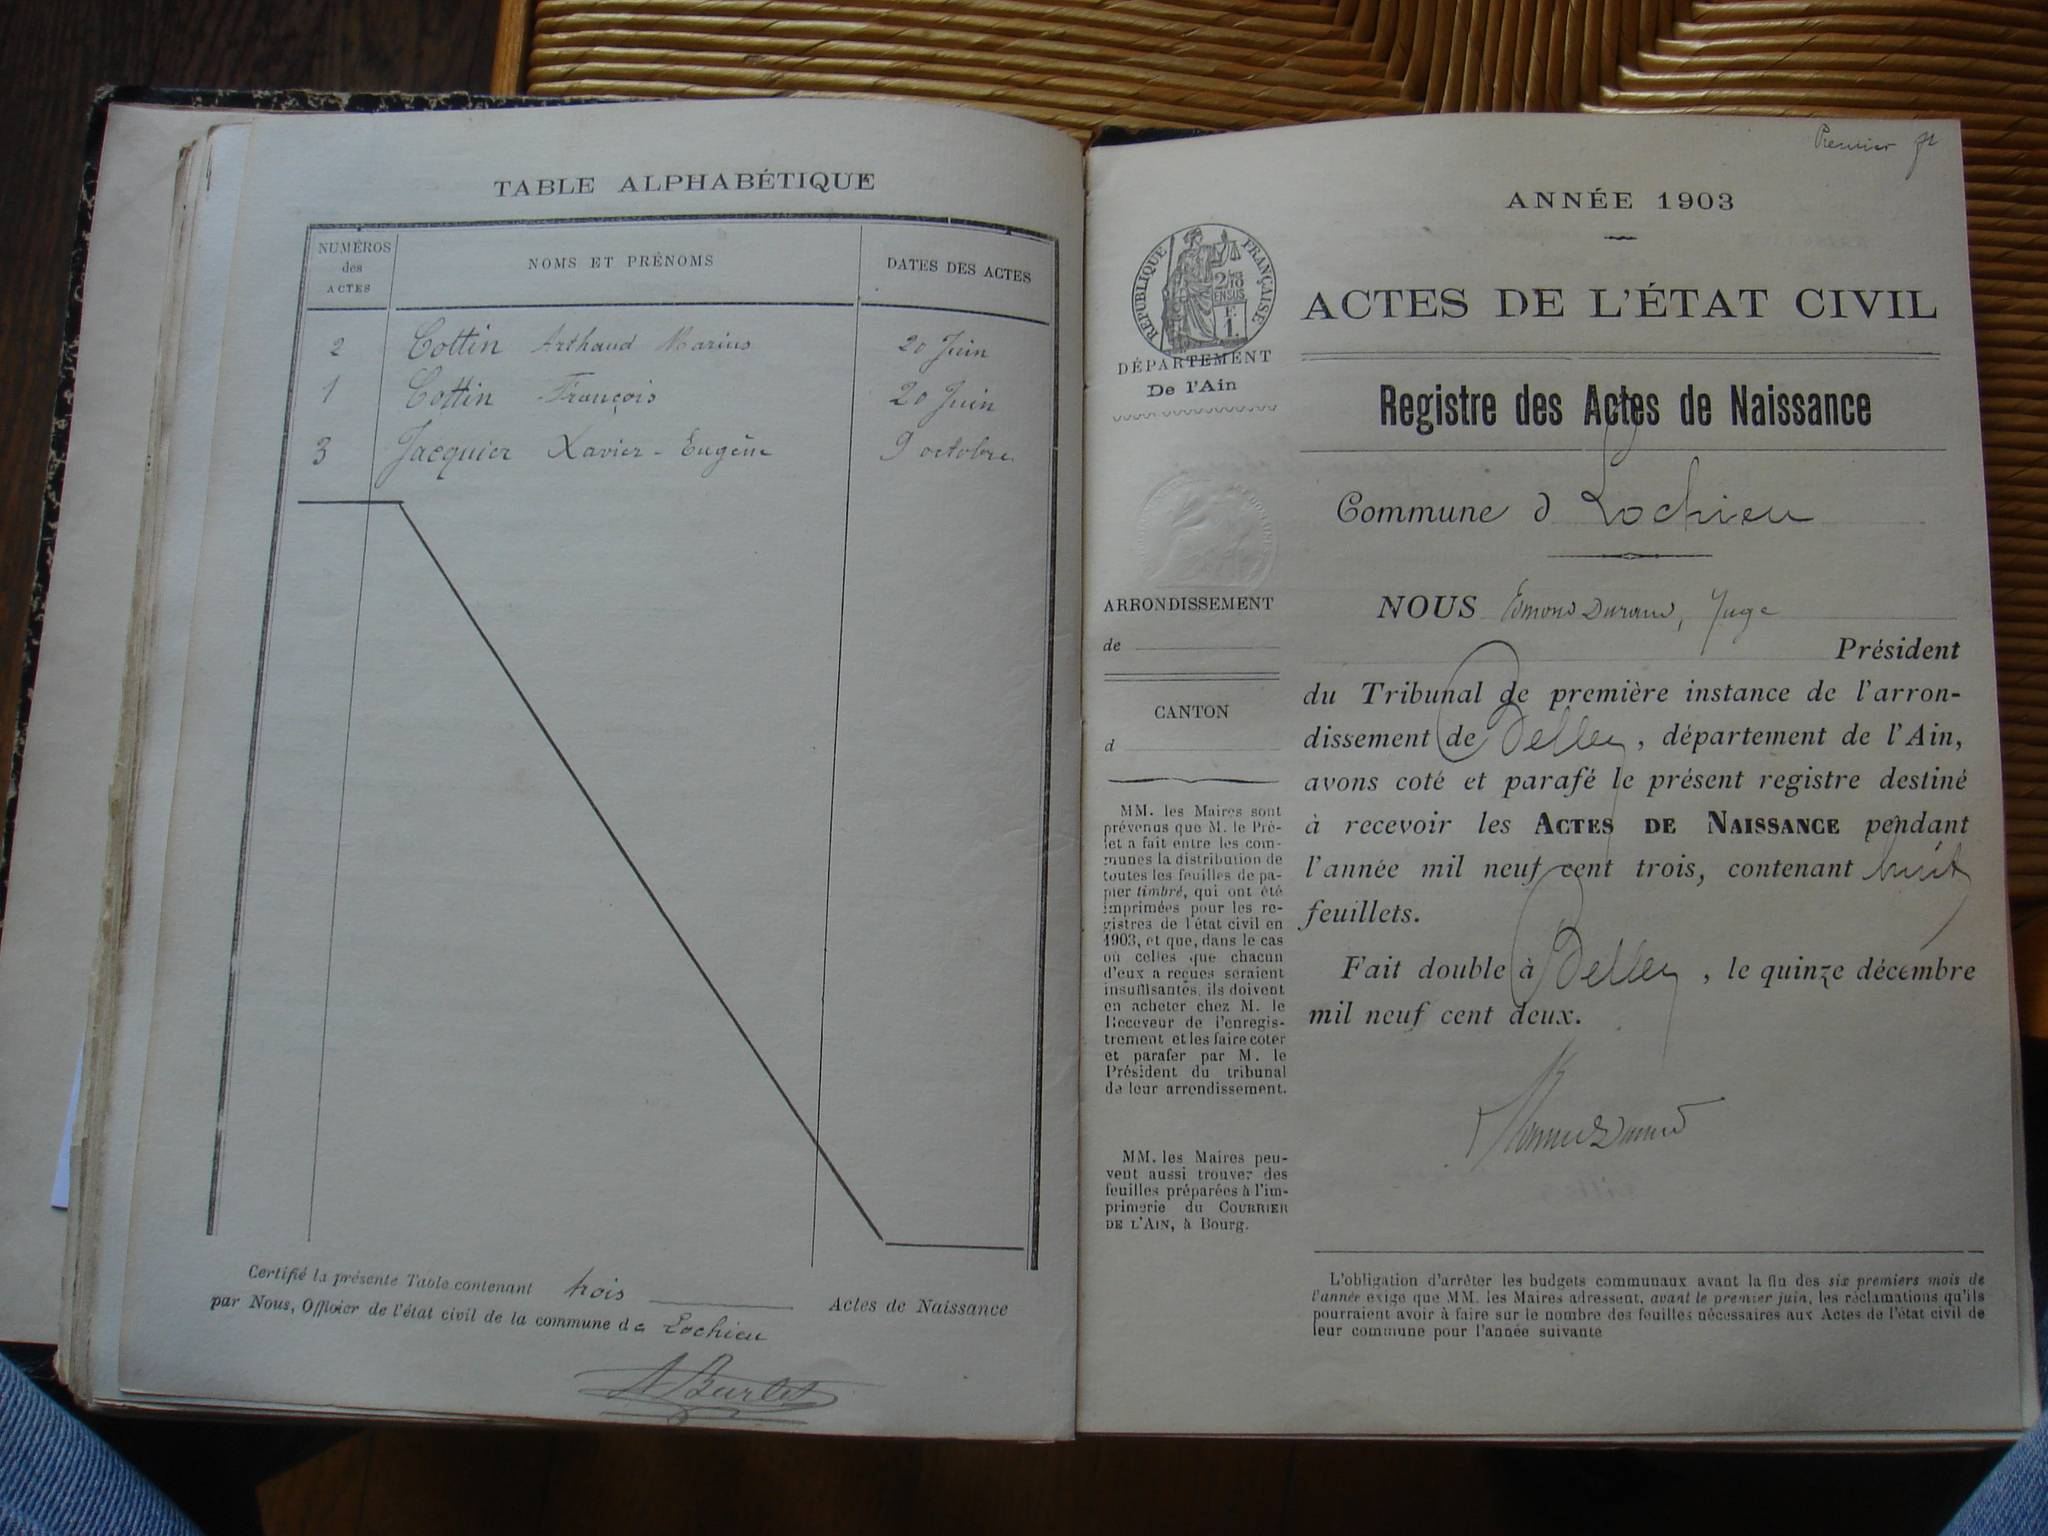 TABLE ALPHABÉTIQUE
NUMÉROS
des
ACTES
NOMS ET PRÉNOMS
DATES DES ACTES
2 Cottin Arthaud Marius 20 Juin
1 Cottin François 20 Juin
3 Jacquier Xavier-Eugène 9 octobre
Certifié la présente Table contenant trois Actes de Naissance
par Nous, Officier de l'état civil de la commune de Lochieu
A Burlet
Premier
ANNÉE 1903
RÉPUBLIQUE FRANÇAISE
2/10
EN SUS
F.
1.
DÉPARTEMENT
De l'Ain
ARRONDISSEMENT
de
CANTON
d
MM. les Maires sont
prévenus que M. le Pré-
fet a fait entre les com-
munes la distribution de
toutes les feuilles de pa-
pier timbré, qui ont été
imprimées pour les re-
gistres de l'état civil en
1903, et que, dans le cas
où celles que chacun
d'eux a reçues seraient
insuffisantes, ils doivent
en acheter chez M. le
Receveur de l'enregis-
trement et les faire coter
et parafer par M. le
Président du tribunal
de leur arrondissement.
MM. les Maires peu-
vent aussi trouver des
feuilles préparées à l'im-
primerie du COURRIER
DE L'AIN, à Bourg.
ACTES DE L'ÉTAT CIVIL
Registre des Actes de Naissance
Commune d Lochieu
NOUS Edmond Durand, Juge
Président
du Tribunal de première instance de l'arron-
dissement de Belley, département de l'Ain,
avons coté et parafé le présent registre destiné
à recevoir les ACTES DE NAISSANCE pendant
l'année mil neuf cent trois, contenant huit
feuillets.
Fait double à Belley, le quinze décembre
mil neuf cent deux.
L'obligation d'arrêter les budgets communaux avant la fin des six premiers mois de
l'année exige que MM. les Maires adressent, avant le premier juin, les réclamations qu'ils
pourraient avoir à faire sur le nombre des feuilles nécessaires aux Actes de l'état civil de
leur commune pour l'année suivante